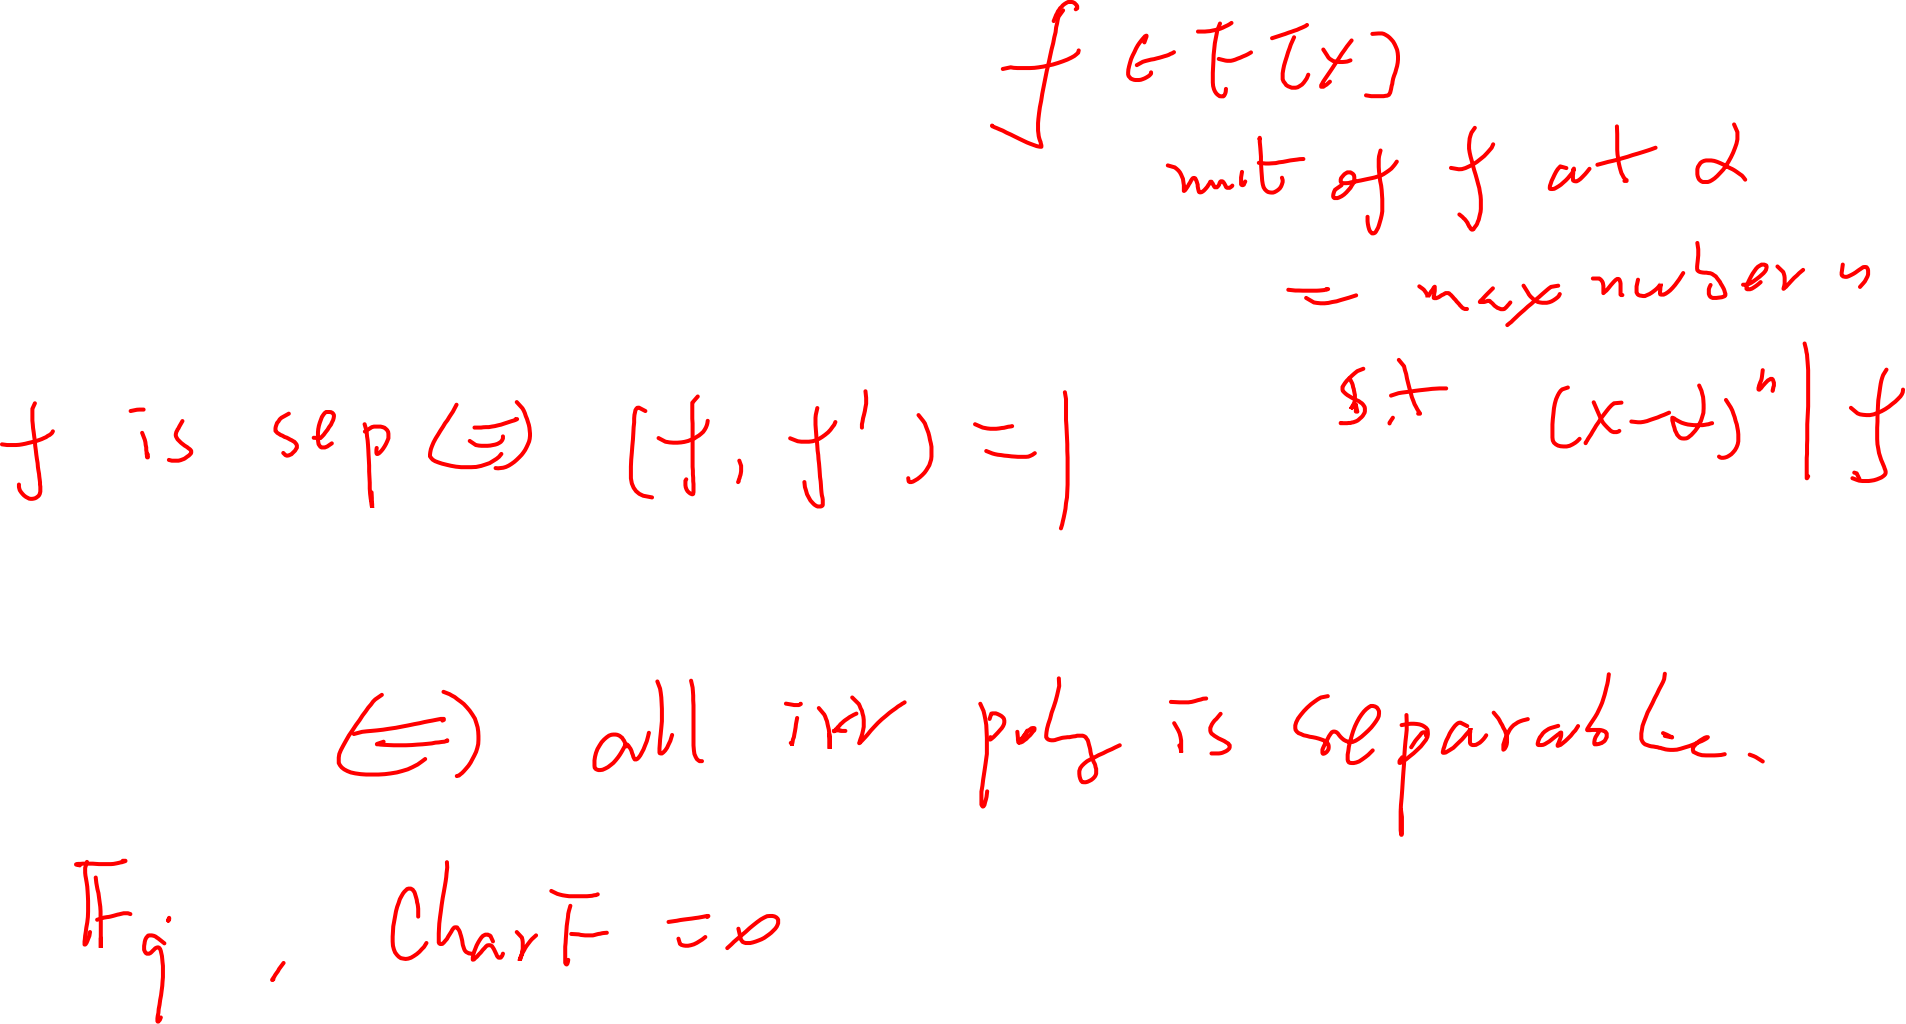 f ∈ F[x]
mut of f at α
= max number n
s.t (x-α)ⁿ | f
f is sep ⟺ (f, f') = 1
⟺ all irr poly is separable.
𝔽q , Char F = 0